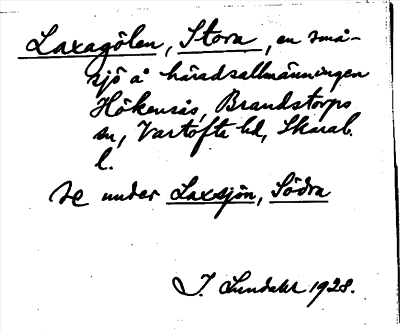 Laxagölen, Stora, en små-
sjö å häradsallmänningen
Hökensås, Brandstorps
sn, Vartofta hd, Skarab.
l.
se under Laxsjön, Södra
I. Lundahl 1928.